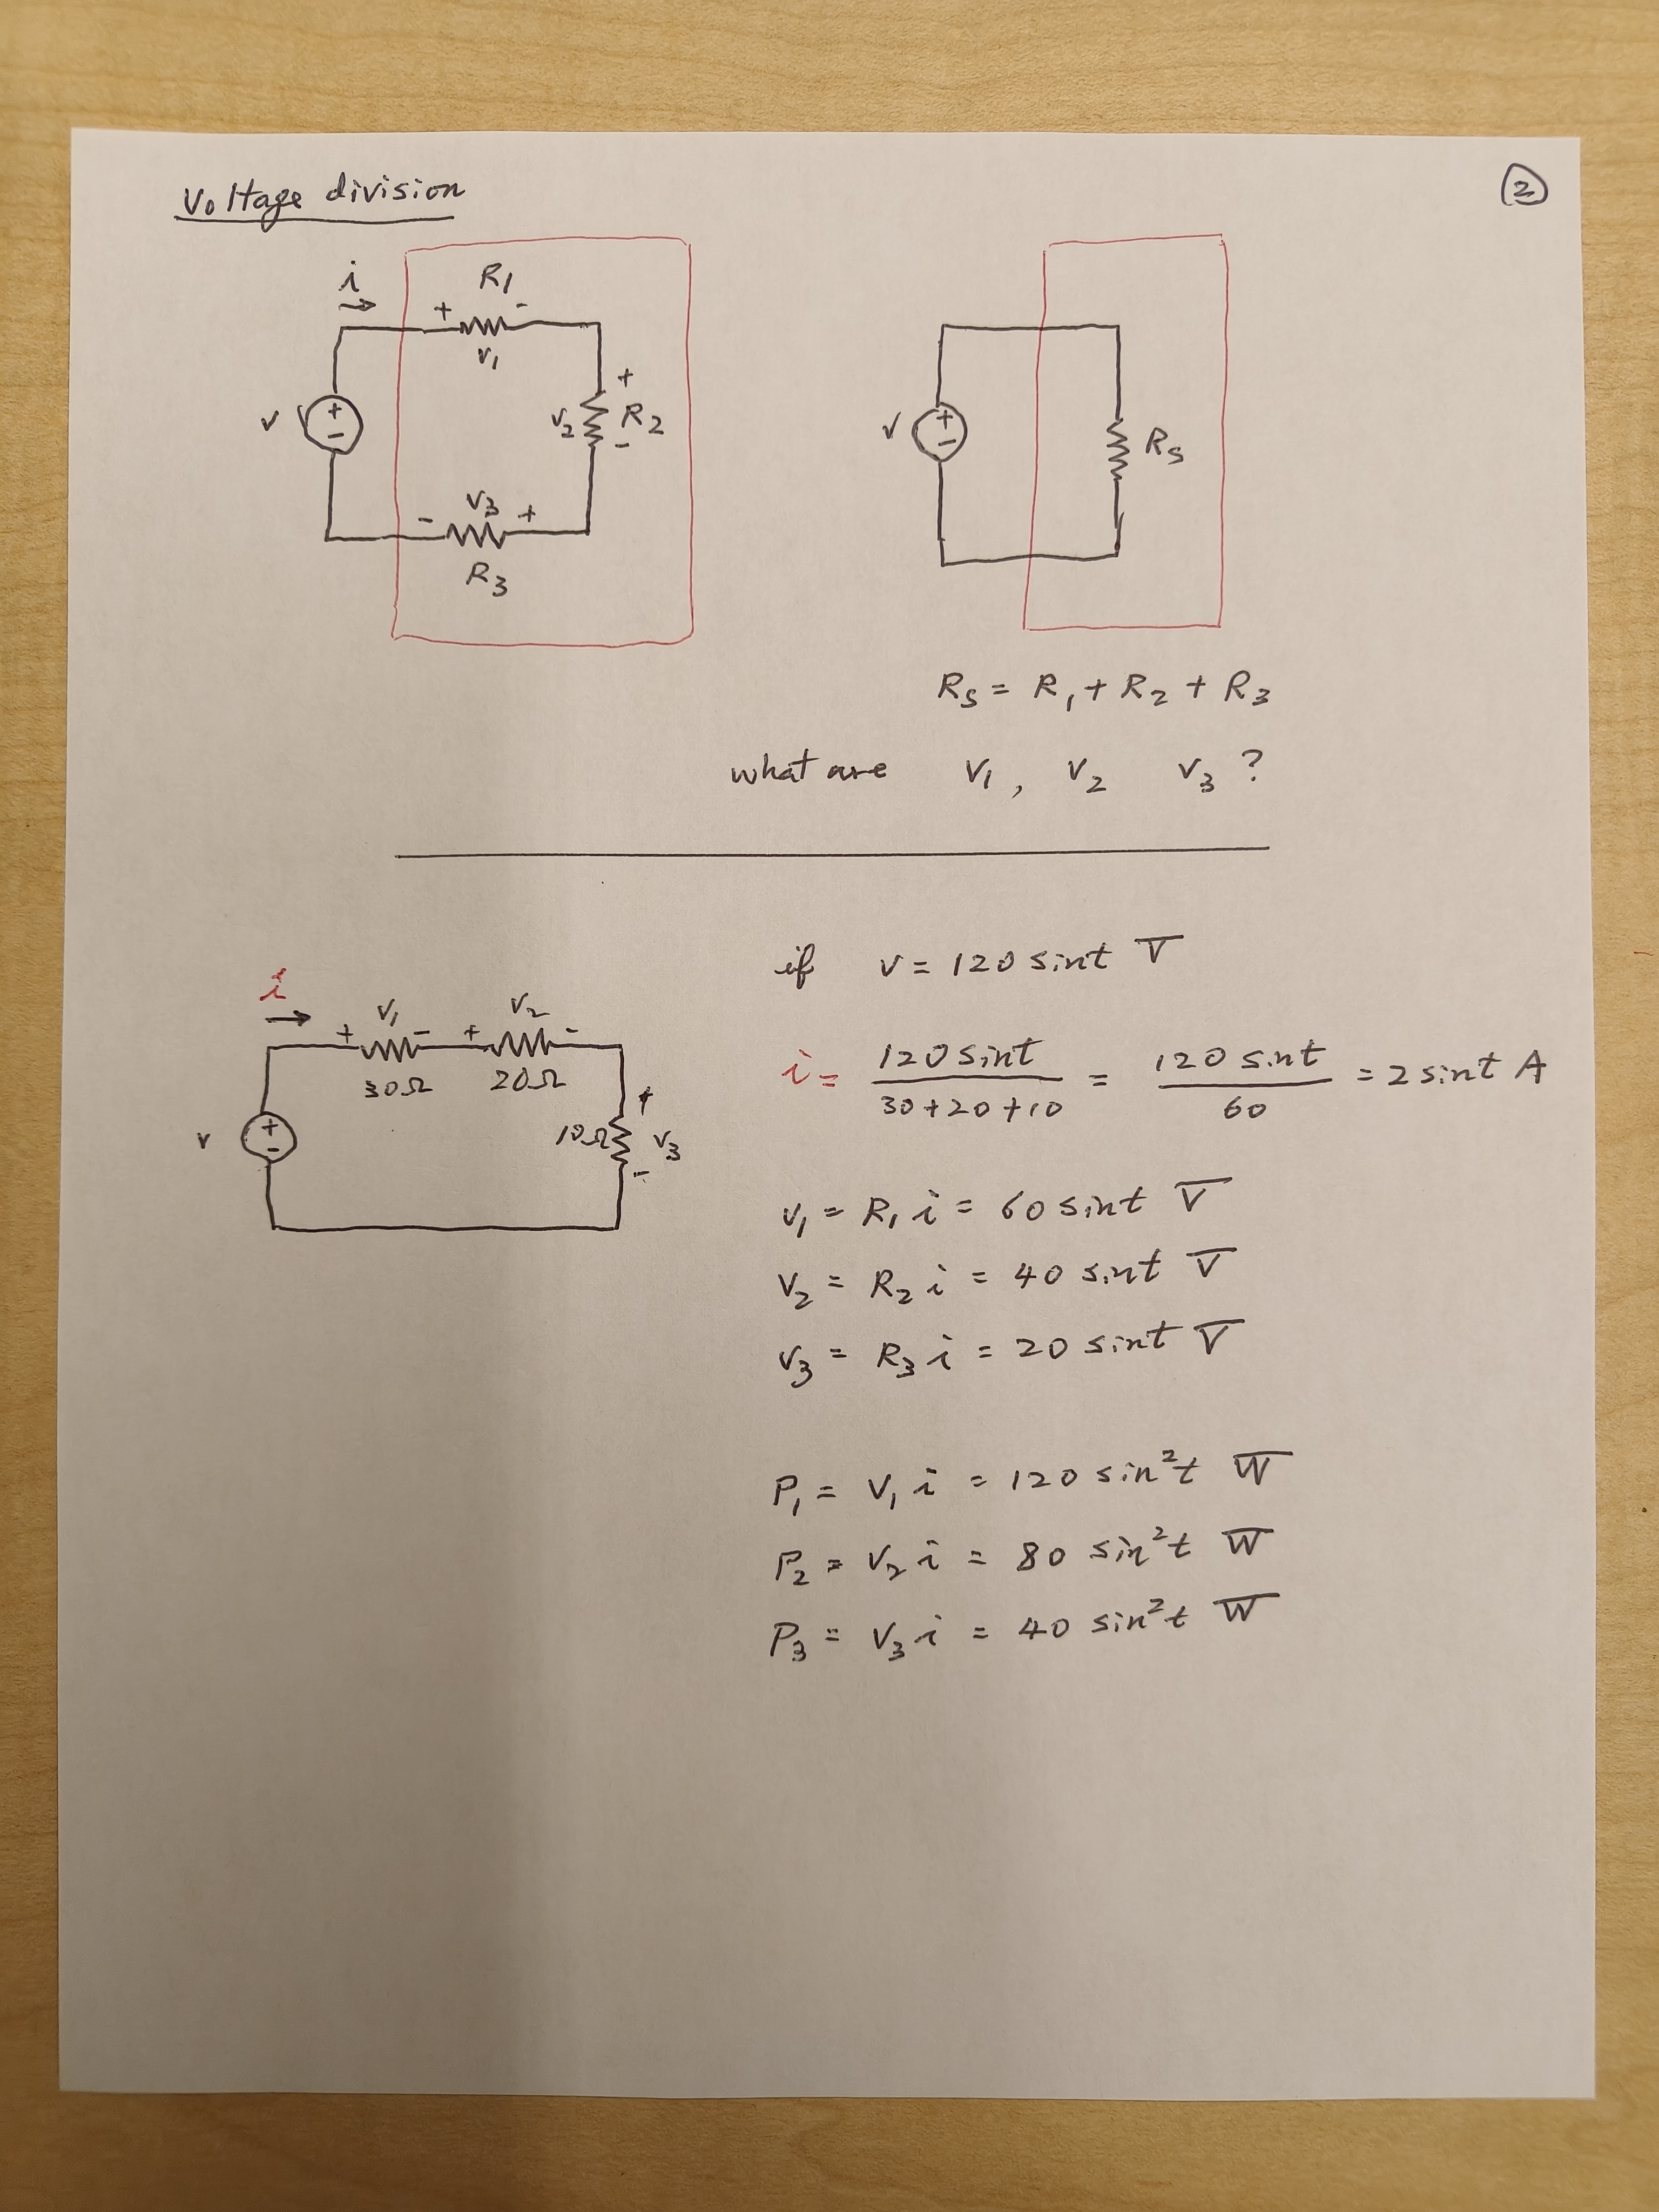 Voltage division
②
i
R1
+ -
v1
v
+
-
+
v2 R2
-
v3
- +
R3
v
+
-
Rs
Rs = R1 + R2 + R3
what are v1, v2 v3 ?
if v = 120 sint V
i
v1 v2
+ - + -
30Ω 20Ω
v
+
-
+
10Ω v3
-
i = 120 sint / 30+20+10 = 120 sint / 60 = 2 sint A
v1 = R1 i = 60 sint V
v2 = R2 i = 40 sint V
v3 = R3 i = 20 sint V
P1 = v1 i = 120 sin²t W
P2 = v2 i = 80 sin²t W
P3 = v3 i = 40 sin²t W